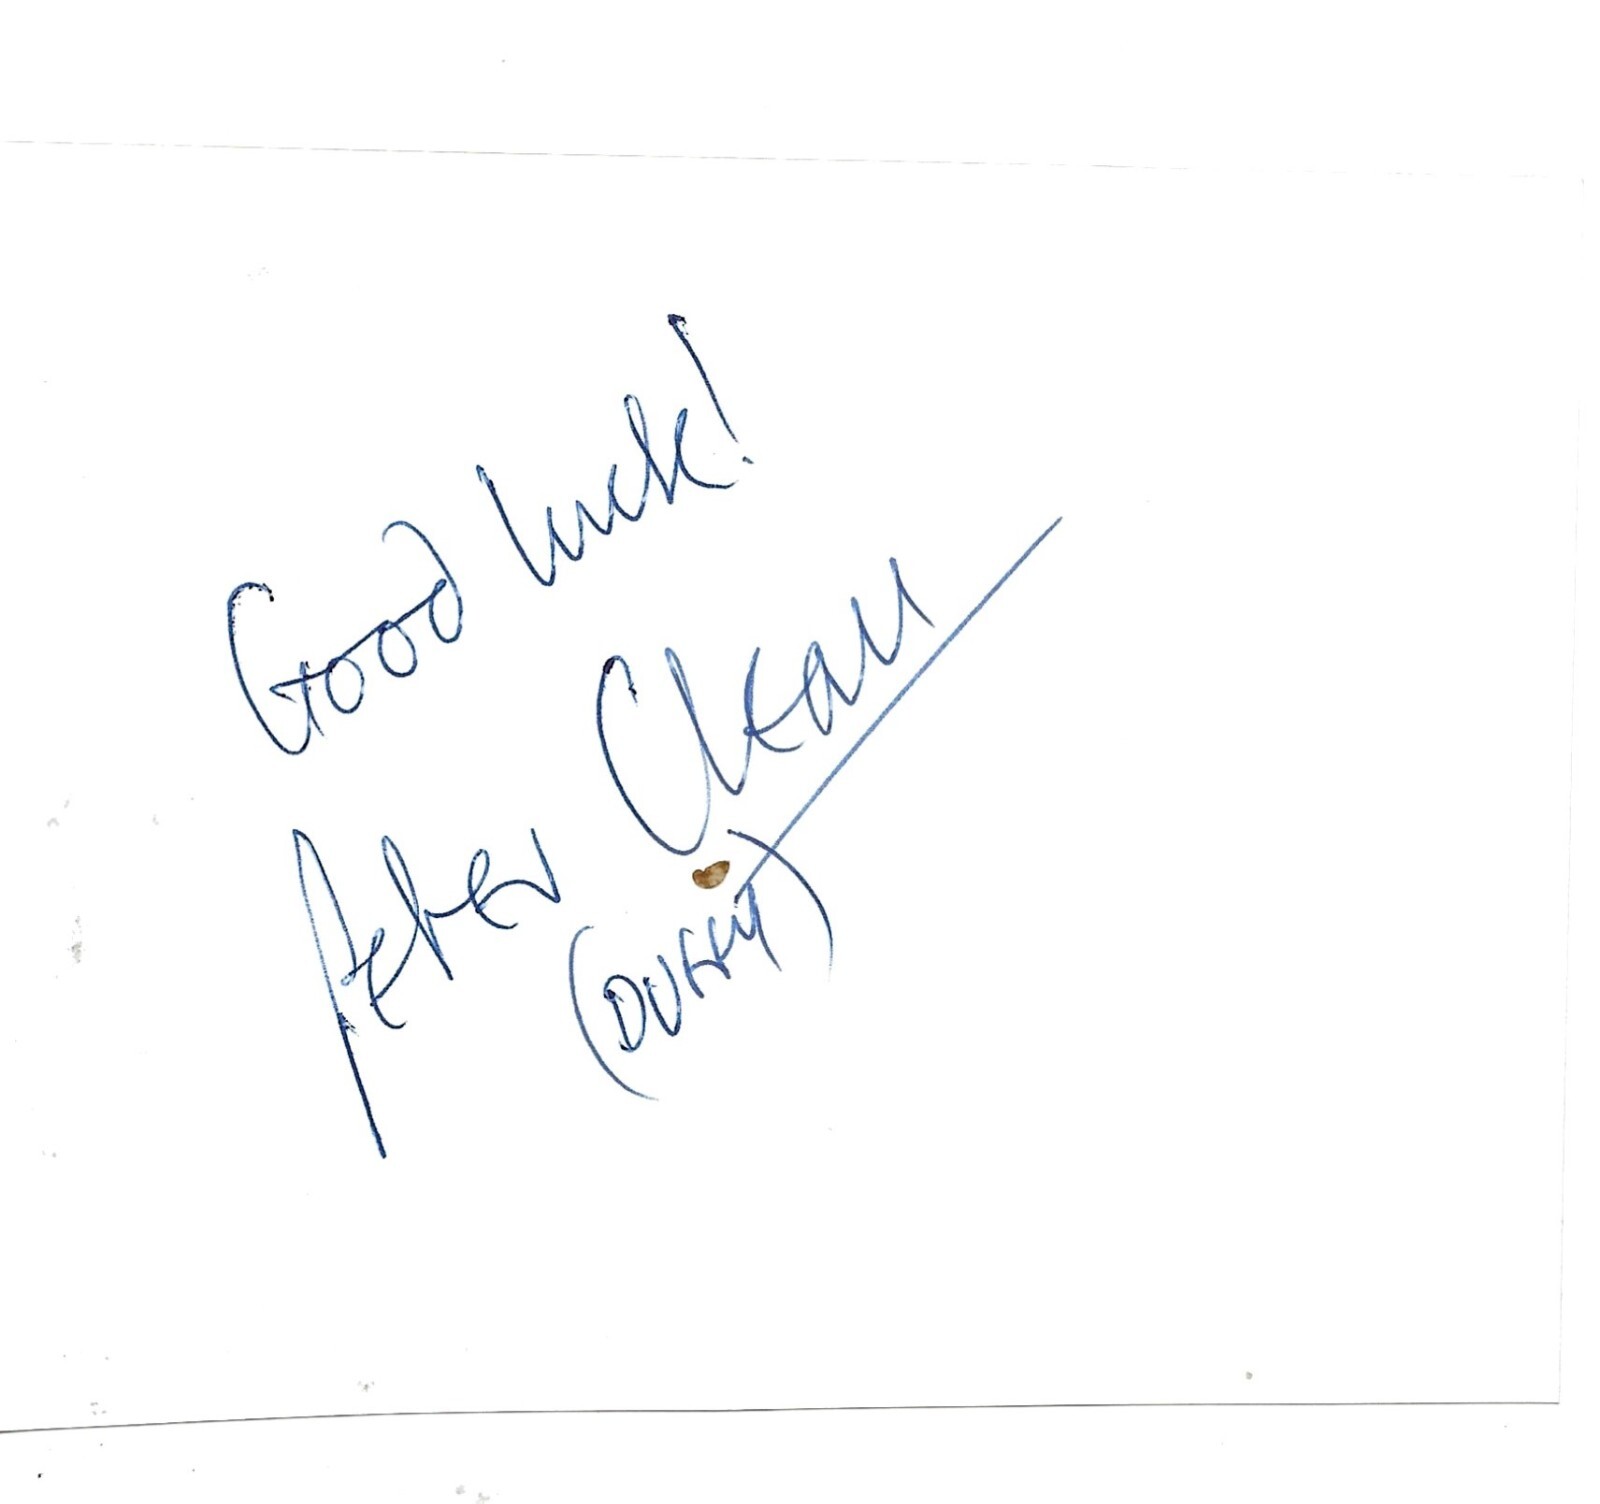 Good luck!
Peter Cleall
(DUFFY)